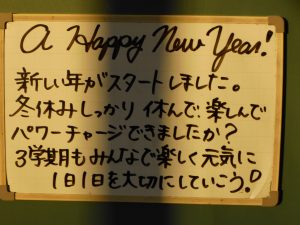 A Happy New Year!
新しい年がスタートしました。
冬休みしっかり休んで、楽しんで
パワーチャージできましたか？
3学期もみんなで楽しく元気に
1日1日を大切にしていこう！